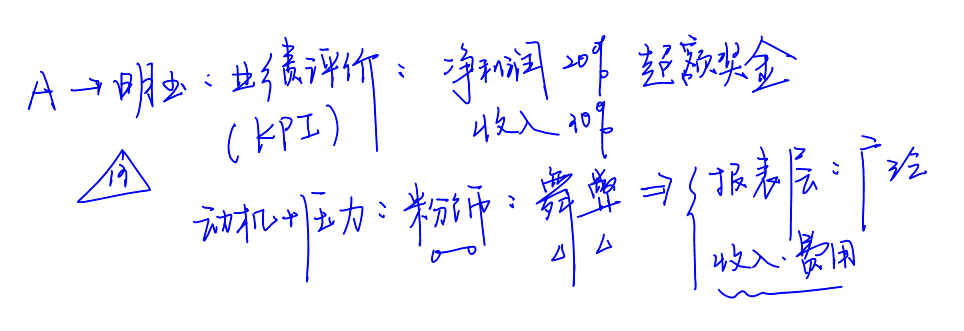 A → 明玉：业绩评价：净利润 20% 超额奖金
(KPI) 收入 30%
动机+压力：粉饰：舞弊 ⇒ { 报表层：广泛
收入、费用